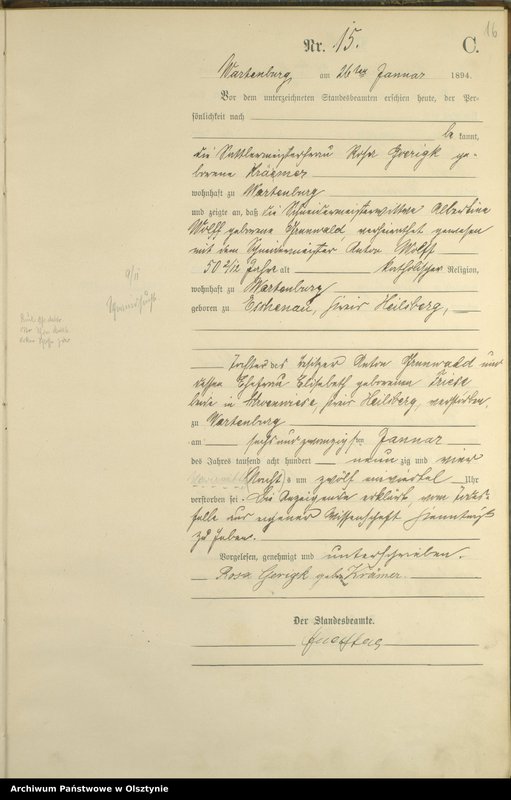 16
Nr. 15.
C.
Wartenburg am 26ten Januar 1894.
Vor dem unterzeichneten Standesbeamten erschien heute, der Per-
sönlichkeit nach
be kannt,
die Sattlermeisterfrau Rosa Goerigk ge-
borene Krämer
wohnhaft zu Wartenburg
und zeigte an, daß die Schneidermeisterwittwe Albertine
Wolff geborene Grunwald, verheirathet gewesen
mit dem Schneidermeister Anton Wolff
50 Jahre alt katholischer Religion,
wohnhaft zu Wartenburg
geboren zu Eschenau, Kreis Heilsberg,
Tochter des Besitzer Anton Grunwald und
dessen Ehefrau Elisabeth geborenen Friese
beide in Kreis Heilsberg, verstorben
zu Wartenburg
am sechs und zwanzigsten Januar
des Jahres tausend acht hundert neun zig und vier
Nacht s um zwölf einviertel Uhr
verstorben sei. Die Anzeigende erklärte, vom Todes-
falle aus eigener Wissenschaft Kenntniß
zu haben.
Vorgelesen, genehmigt und unterschrieben.
Rosa Gerigk geb. Krämer.
Der Standesbeamte.
Archiwum Państwowe w Olsztynie